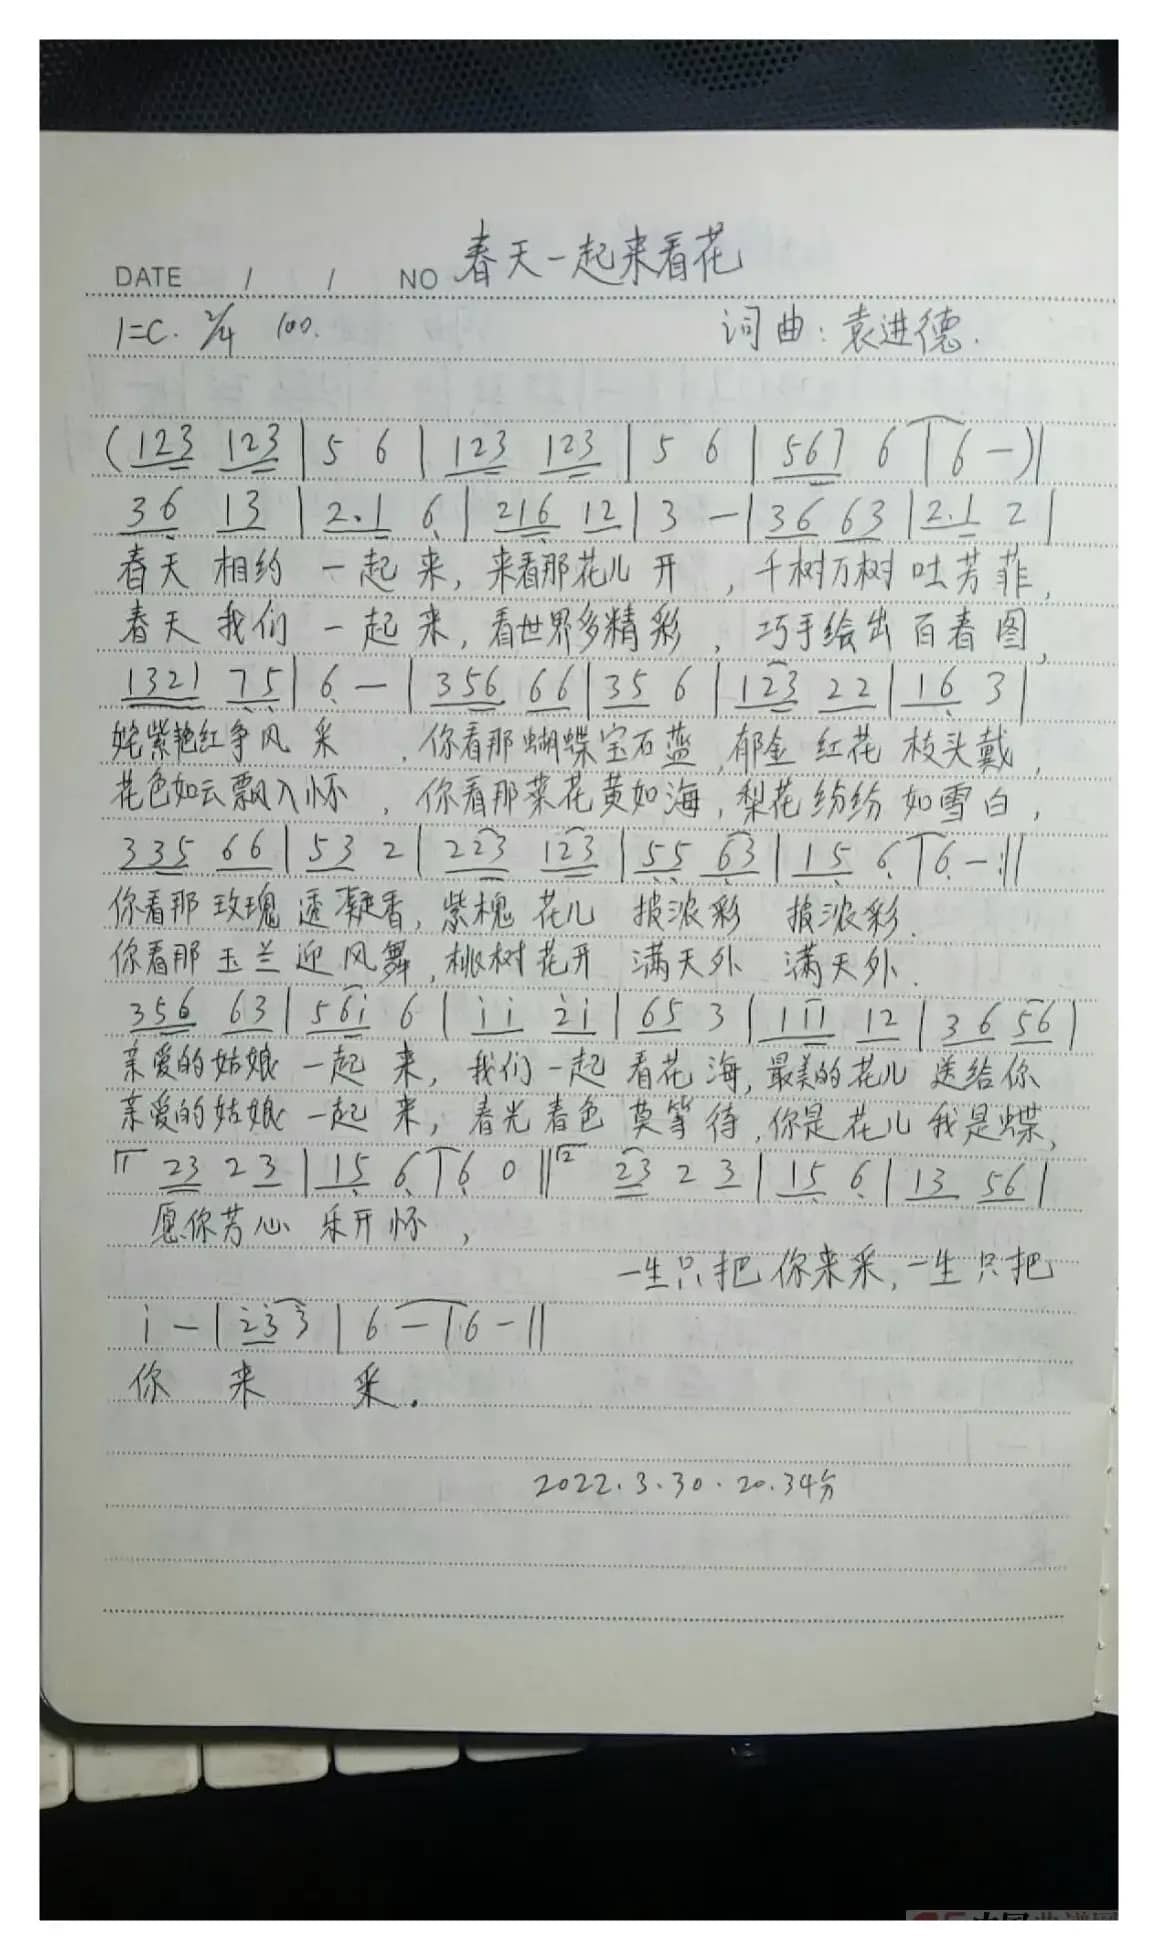 春天一起来看花
DATE / / NO
1=C. 2/4 100. 词曲:袁进德.
(123 123|5 6|123 123|5 6|567 6|6-)|
36 13|2.1 6|216 12|3-|36 63|2.1 2|
春天 相约 一起来,来看那花儿开,千树万树吐芳菲,
春天 我们 一起来,看世界多精彩,巧手绘出百春图,
1321 75|6-|356 66|35 6|123 22|16 3|
姹紫艳红争风采,你看那蝴蝶宝石蓝,郁金红花枝头戴,
花色如云飘入怀,你看那菜花黄如海,梨花纷纷如雪白,
335 66|53 2|223 123|55 63|15 6|6-:||
你看那玫瑰透凝香,紫槐花儿 披浓彩 披浓彩.
你看那玉兰迎风舞,桃树花开 满天外 满天外.
356 63|56i 6|ii 2i|65 3|111 12|36 56|
亲爱的姑娘一起来,我们一起看花海,最美的花儿送给你
亲爱的姑娘一起来,春光春色莫等待,你是花儿我是蝶,
1 23 23|15 6|6 0||2 23 2 3|15 6|13 56|
愿你芳心乐开怀,
一生只把你来采,一生只把
i-|23 3|6-|6-||
你 来 采.
2022.3.30.20.34分